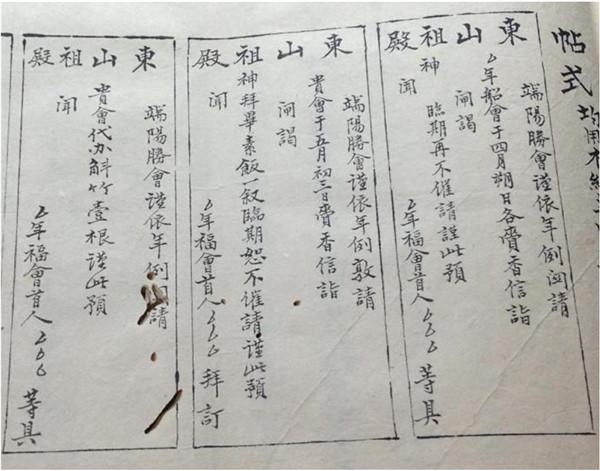 帖式 均用
東山祖殿
端陽勝會謹依年例請
年船會于四月朔日各賫香信詣
謁
神 臨期再不催請謹此預
聞
年福會首人 等具
東山祖殿
端陽勝會謹依年例敦請
貴會于五月初三日賫香信詣
謁
神拜畢素飯一叙臨期恕不催請謹此預
聞
年福會首人 拜訂
東山祖殿
端陽勝會謹依年例請
貴會代办斛竹壹根謹此預
聞
年福會首人 等具